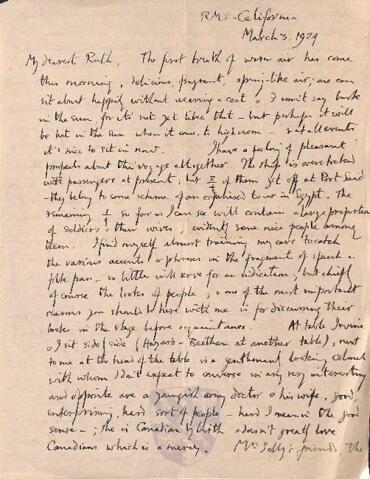 RMS. California
March 3. 1924
My dearest Ruth, The first breath of warm air has come
this morning, delicious, fragrant, spring-like air; one can
sit about happily without wearing a coat & I won't say bask
in the sun for it's not yet like that – but perhaps it will
be hot in the sun when it comes to high noon – & at all events
it's nice to sit in now. I have a feeling of pleasant
prospects about this voyage altogether. The ship is overcrowded
with passengers at present, but of them get off at Port Said
– they belong to some scheme of an organised tour in Egypt. The
remaining so far as I can see will contain a large proportion
of soldiers & their wives, evidently some nice people among
them. I find myself almost training my ears to catch
the various accents or phrases in the fragments of speech
so little will serve for an indication, but chiefly
of course the looks of people; & one of the most important
reasons you should be here with me is for discussing their
looks in the stage before acquaintance. At table Irvine
& I sit side by side (Hazard & Beetham at another table), next
to me at the head of the table is a gentlemanly looking colonel
with whom I don't expect to converse in any very interesting
and opposite are a youngish army doctor & his wife, good,
enterprising, hard sort of people – hard I mean in the good
sense –; she is Canadian by birth & doesn't greatly love
Canadians which is a mercy. Mrs Solly's friends the